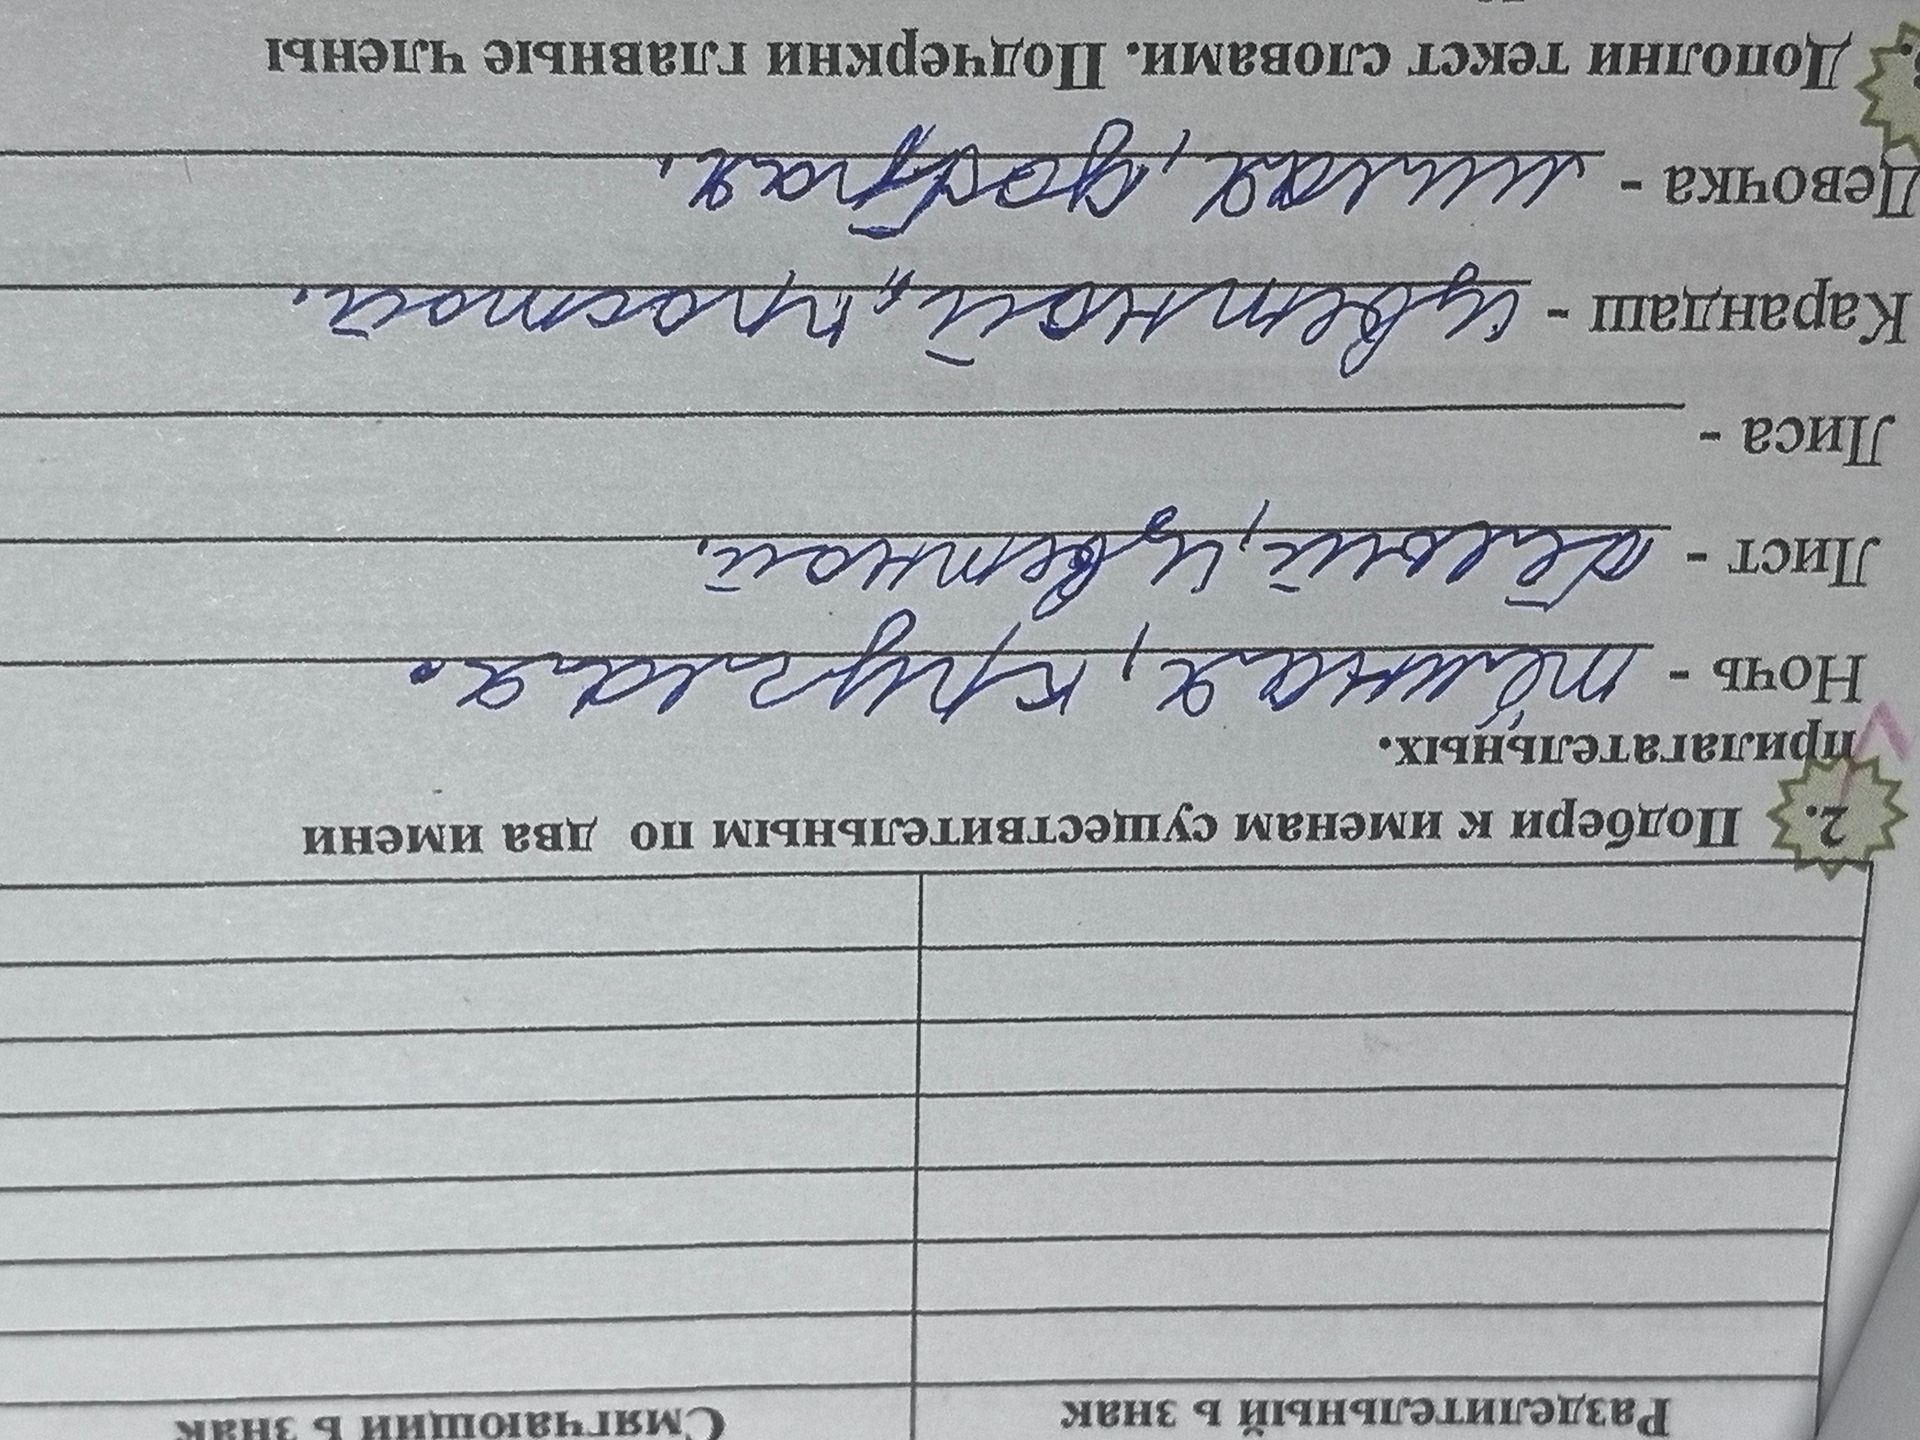 Разделительный ь знак Смягчающий ь знак
2. Подбери к именам существительным по два имени
прилагательных.
Ночь - тёмная, круглая.
Лист - белый, цветной.
Лиса -
Карандаш - цветной, простой.
Девочка - милая, добрая.
Дополни текст словами. Подчеркни главные члены